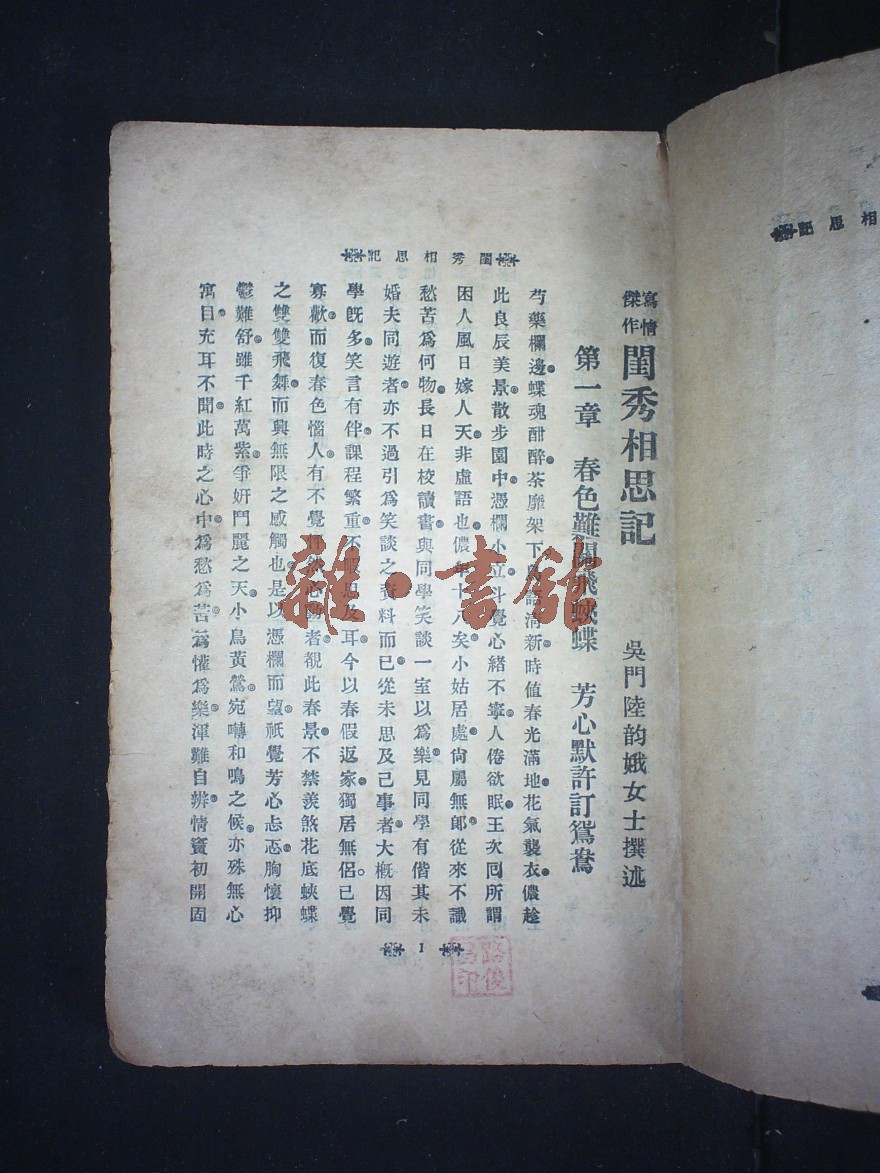 閨秀相思記
寫情
傑作
閨秀相思記
吳門陸韵娥女士撰述
第一章 春色難 飛蛺蝶 芳心默許訂鴛鴦
芍藥欄邊蝶魂酣醉荼靡架下 語淸新時値春光滿地花氣襲衣儂趁
此良辰美景散步園中憑欄小立斗覺心緒不寧人倦欲眠王次囘所謂
困人風日嫁人天非虛語也儂年十八矣小姑居處尙屬無郞從來不識
愁苦爲何物長日在校讀書與同學笑談一室以爲樂見同學有偕其未
婚夫同遊者亦不過引爲笑談之資料而已從未思及己事者大槪因同
學旣多笑言有伴課程繁重不暇思及耳今以春假返家獨居無侶已覺
寡歡而復春色惱人有不覺怦然心動者覩此春景不禁羨煞花底蛺蝶
之雙雙飛舞而興無限之感觸也是以憑欄而望祇覺芳心忐忑胸懷抑
鬱難舒雖千紅萬紫爭妍鬥麗之天小鳥黃鶯宛囀和鳴之候亦殊無心
寓目充耳不聞此時之心中爲愁爲苦爲懽爲樂渾難自辨情竇初開固
1
雜·書舘
相思記